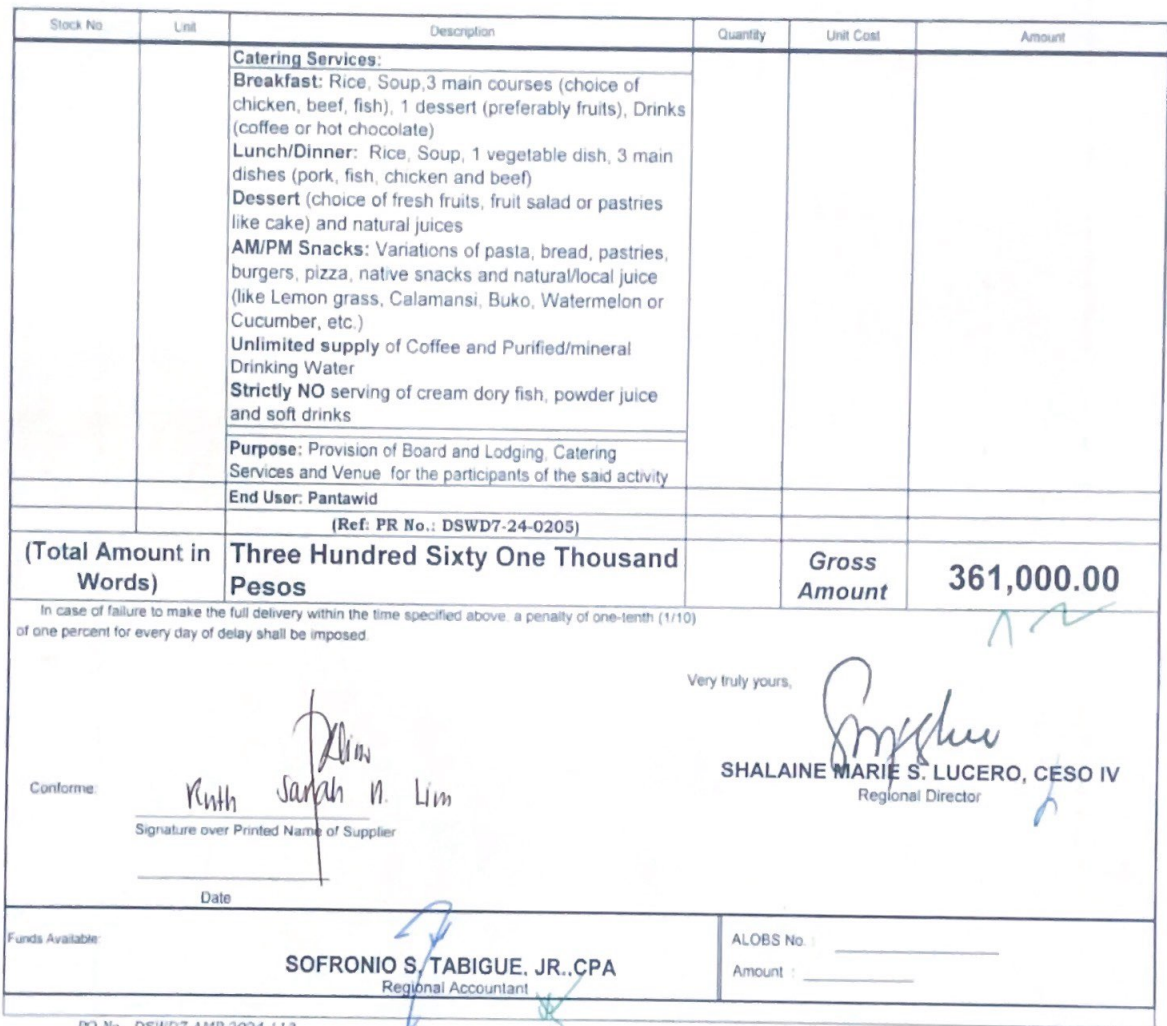 Stock No. Unit Description Quantity Unit Cost Amount
Catering Services:
Breakfast: Rice, Soup,3 main courses (choice of
chicken, beef, fish), 1 dessert (preferably fruits), Drinks
(coffee or hot chocolate)
Lunch/Dinner: Rice, Soup, 1 vegetable dish, 3 main
dishes (pork, fish, chicken and beef)
Dessert (choice of fresh fruits, fruit salad or pastries
like cake) and natural juices
AM/PM Snacks: Variations of pasta, bread, pastries,
burgers, pizza, native snacks and natural/local juice
(like Lemon grass, Calamansi, Buko, Watermelon or
Cucumber, etc.)
Unlimited supply of Coffee and Purified/mineral
Drinking Water
Strictly NO serving of cream dory fish, powder juice
and soft drinks
Purpose: Provision of Board and Lodging, Catering
Services and Venue for the participants of the said activity
End User: Pantawid
(Ref: PR No.: DSWD7-24-0205)
(Total Amount in Words) Three Hundred Sixty One Thousand Pesos Gross Amount 361,000.00
In case of failure to make the full delivery within the time specified above, a penalty of one-tenth (1/10)
of one percent for every day of delay shall be imposed.
Very truly yours,
SHALAINE MARIE S. LUCERO, CESO IV
Regional Director
Conforme:
Ruth Sarah N. Lim
Signature over Printed Name of Supplier
Date
Funds Available:
SOFRONIO S. TABIGUE, JR.,CPA
Regional Accountant
ALOBS No. :
Amount :
PO No.